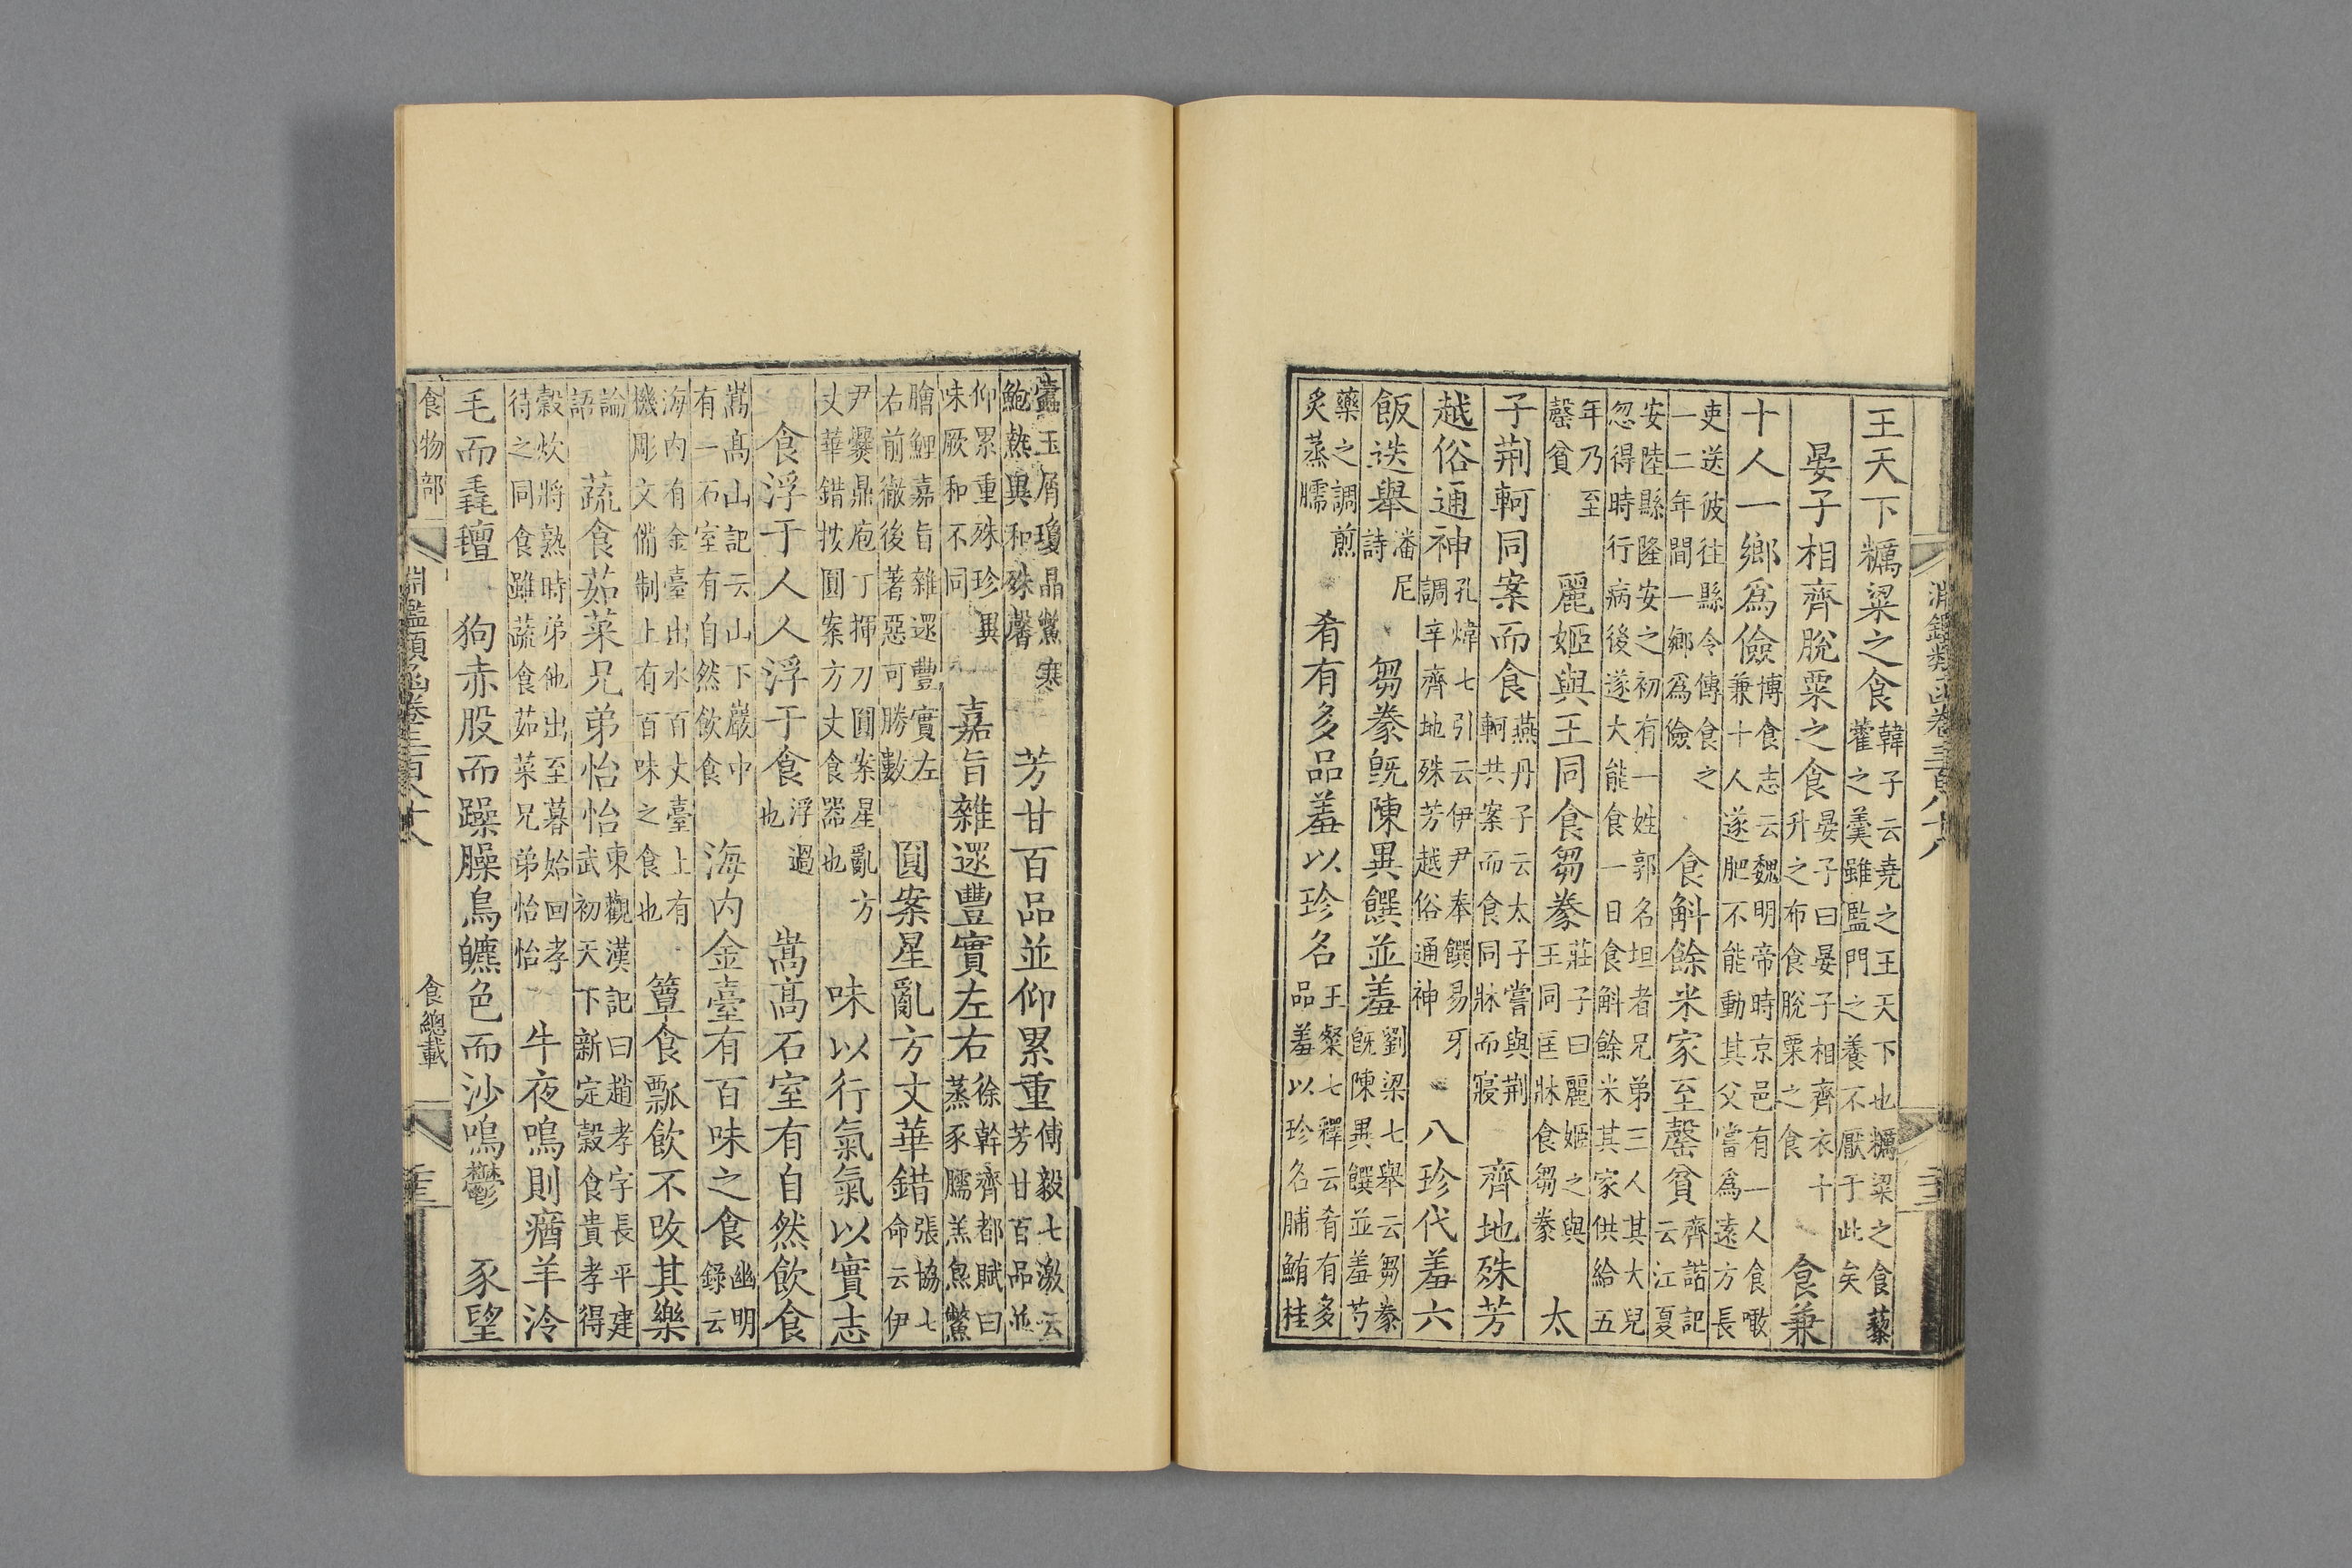 淵鑑類函卷三百八十八
王天下糲粱之食韓子云堯之王天下也糲粱之食藜藿之羹雖監門之養不厭于此矣
晏子相齊脫粟之食晏子曰晏子相齊衣十升之布食脫粟之食 食兼
十人一鄉爲儉博食志云魏明帝時京邑有一人食噉兼十人遂肥不能動其父嘗爲遠方長
吏送彼往縣令傳食之一二年間一鄉爲儉 食斛餘米家至罄貧齊諧記云江夏
安陸縣隆安之初有一姓郭名坦者兄弟三人其大兒忽得時行病後遂大能食一日食斛餘米其家供給五
年乃至罄貧 麗姬與王同食芻豢莊子曰麗姬之與王同匡牀食芻豢 太
子荊軻同案而食燕丹子云太子嘗與荊軻共案而食同牀而寢 齊地殊芳
越俗通神孔煒七引云伊尹奉饌易牙調辛齊地殊芳越俗通神 八珍代羞六
飯迭舉潘尼詩 芻豢旣陳異饌並羞劉梁七舉云芻豢旣陳異饌並羞芍
藥之調煎炙蒸臑 肴有多品羞以珍名王粲七釋云肴有多品羞以珍名脯鮪桂
蠹玉屑瓊晶鱉寒鮑熱異和殊馨 芳甘百品並仰累重傅毅七激云芳甘百品並
仰累重殊珍異味厥和不同 嘉旨雜還豐實左右徐幹齊都賦曰蒸豕臑羔炰鱉
膾鯉嘉旨雜還豐實左右前徹後著惡可勝數 圓案星亂方丈華錯張協七命云伊
尹爨鼎庖丁揮刀圓案星亂方丈華錯按圓案方丈食器也 味以行氣氣以實志
食浮于人人浮于食浮過也 嵩高石室有自然飲食
嵩高山記云山下巖中有一石室有自然飲食 海內金臺有百味之食幽明錄云
海內有金臺出水百丈臺上有機彫文備制上有百味之食也 簞食瓢飲不改其樂
論語 蔬食茹菜兄弟怡怡東觀漢記曰趙孝字長平建武初天下新定穀食貴孝得
穀炊將熟時弟他出至暮始回孝待之同食雖蔬食茹菜兄弟怡怡 牛夜鳴則庮羊泠
毛而毳氊 狗赤股而躁臊鳥皫色而沙鳴鬱 豕望
食物部 淵鑑類函卷三百八十八 食總載